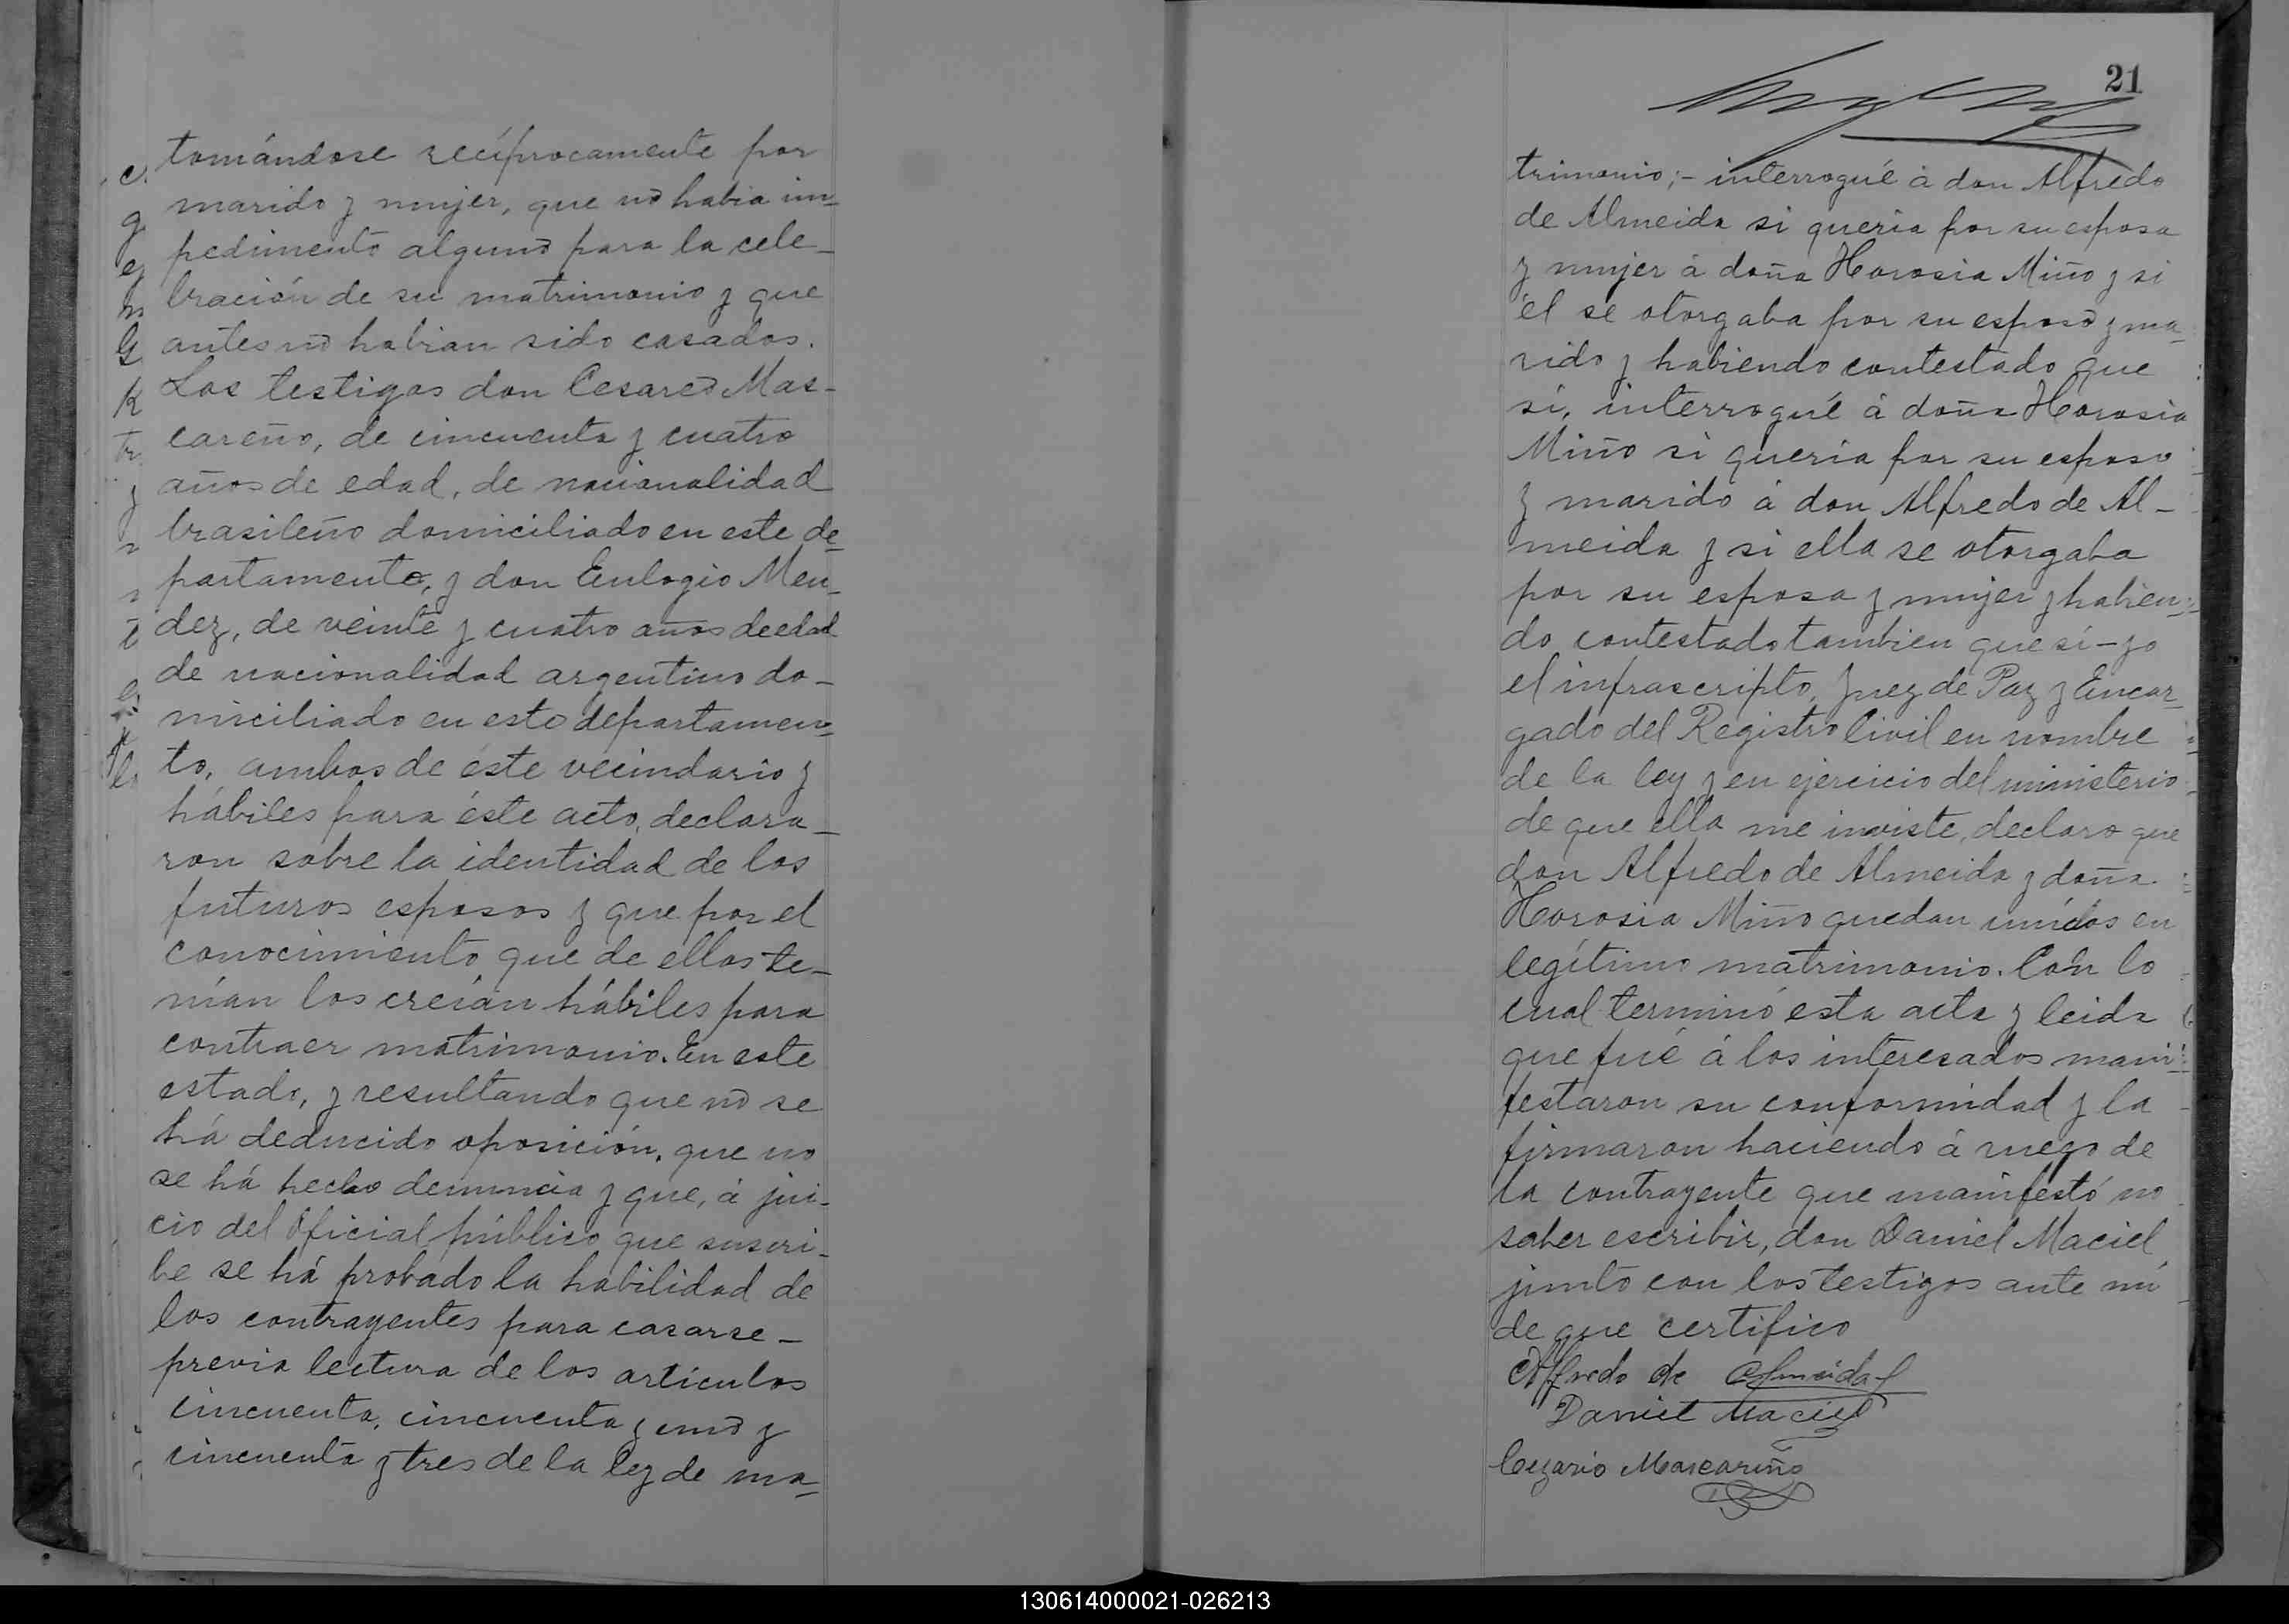 tomándose recíprocamente por
marido y mujer, que no habia im-
pedimento alguno para la cele-
bración de su matrimonio y que
antes no habian sido casados.
Los testigos don Cesareo Mas-
careño, de cincuenta y cuatro
años de edad, de nacionalidad
brasileño domiciliado en este de-
partamento, y don Eulogio Men-
dez, de veinte y cuatro años de edad
de nacionalidad argentino do-
miciliado en este departamen-
to, ambos de éste vecindario y
hábiles para éste acto, declara-
ron sobre la identidad de los
futuros esposos y que por el
conocimiento que de ellos te-
nían los creían hábiles para
contraer matrimonio. En este
estado, y resultando que no se
há deducido oposición, que no
se há hecho denuncia y que, á jui-
cio del oficial público que suscri-
be se há probado la habilidad de
los contrayentes para casarse-
previa lectura de los artículos
cincuenta, cincuenta y uno y
cincuenta y tres de la ley de ma-
21
trimonio;- interrogué á don Alfredo
de Almeida si queria por su esposa
y mujer á doña Horosia Miño y si
él se otorgaba por su esposo y ma-
rido y habiendo contestado que
sí, interrogué á doña Horosia
Miño si quería por su esposo
y marido á don Alfredo de Al-
meida y si ella se otorgaba
por su esposa y mujer y habien-
do contestado tambien que sí-yo
el infrascripto, Juez de Paz y Encar-
gado del Registro Civil en nombre
de la ley y en ejercicio del ministerio
de que ella me inviste, declaro que
don Alfredo de Almeida y doña
Horosia Miño quedan unidos en
legítimo matrimonio. Con lo
cual terminó esta acta y leida
que fué á los interesados mani-
festaron su conformidad y la
firmaron haciendo á ruego de
la contrayente que manifestó no
saber escribir, don Daniel Maciel
junto con los testigos ante mí
de que certifico
Alfredo de Almeida
Daniel Maciel
Cezario Mascariño
130614000021-026213